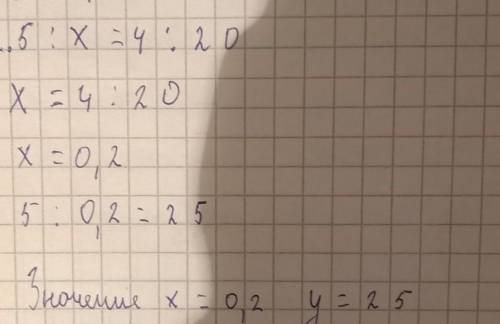 ..5 : x = 4 : 20
x = 4 : 20
x = 0,2
5 : 0,2 = 25
Значение x = 0,2 y = 25